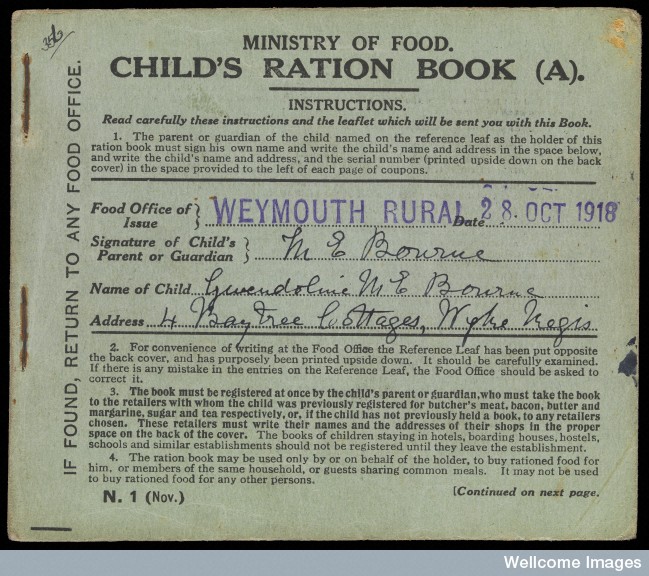 MINISTRY OF FOOD.
CHILD'S RATION BOOK (A).
INSTRUCTIONS.
Read carefully these instructions and the leaflet which will be sent you with this Book.
1. The parent or guardian of the child named on the reference leaf as the holder of this
ration book must sign his own name and write the child's name and address in the space below,
and write the child's name and address, and the serial number (printed upside down on the back
cover) in the space provided to the left of each page of coupons.
Food Office of Issue } WEYMOUTH RURAL Date 28. OCT 1918
Signature of Child's Parent or Guardian } M E Bourne
Name of Child Gwendoline M E Bourne
Address 4 Baytree Cottages, Wyke Regis
2. For convenience of writing at the Food Office the Reference Leaf has been put opposite
the back cover, and has purposely been printed upside down. It should be carefully examined.
If there is any mistake in the entries on the Reference Leaf, the Food Office should be asked to
correct it.
3. The book must be registered at once by the child's parent or guardian, who must take the book
to the retailers with whom the child was previously registered for butcher's meat, bacon, butter and
margarine, sugar and tea respectively, or, if the child has not previously held a book, to any retailers
chosen. These retailers must write their names and the addresses of their shops in the proper
space on the back of the cover. The books of children staying in hotels, boarding houses, hostels,
schools and similar establishments should not be registered until they leave the establishment.
4. The ration book may be used only by or on behalf of the holder, to buy rationed food for
him, or members of the same household, or guests sharing common meals. It may not be used
to buy rationed food for any other persons.
N. 1 (Nov.) [Continued on next page.
IF FOUND, RETURN TO ANY FOOD OFFICE.
Wellcome Images